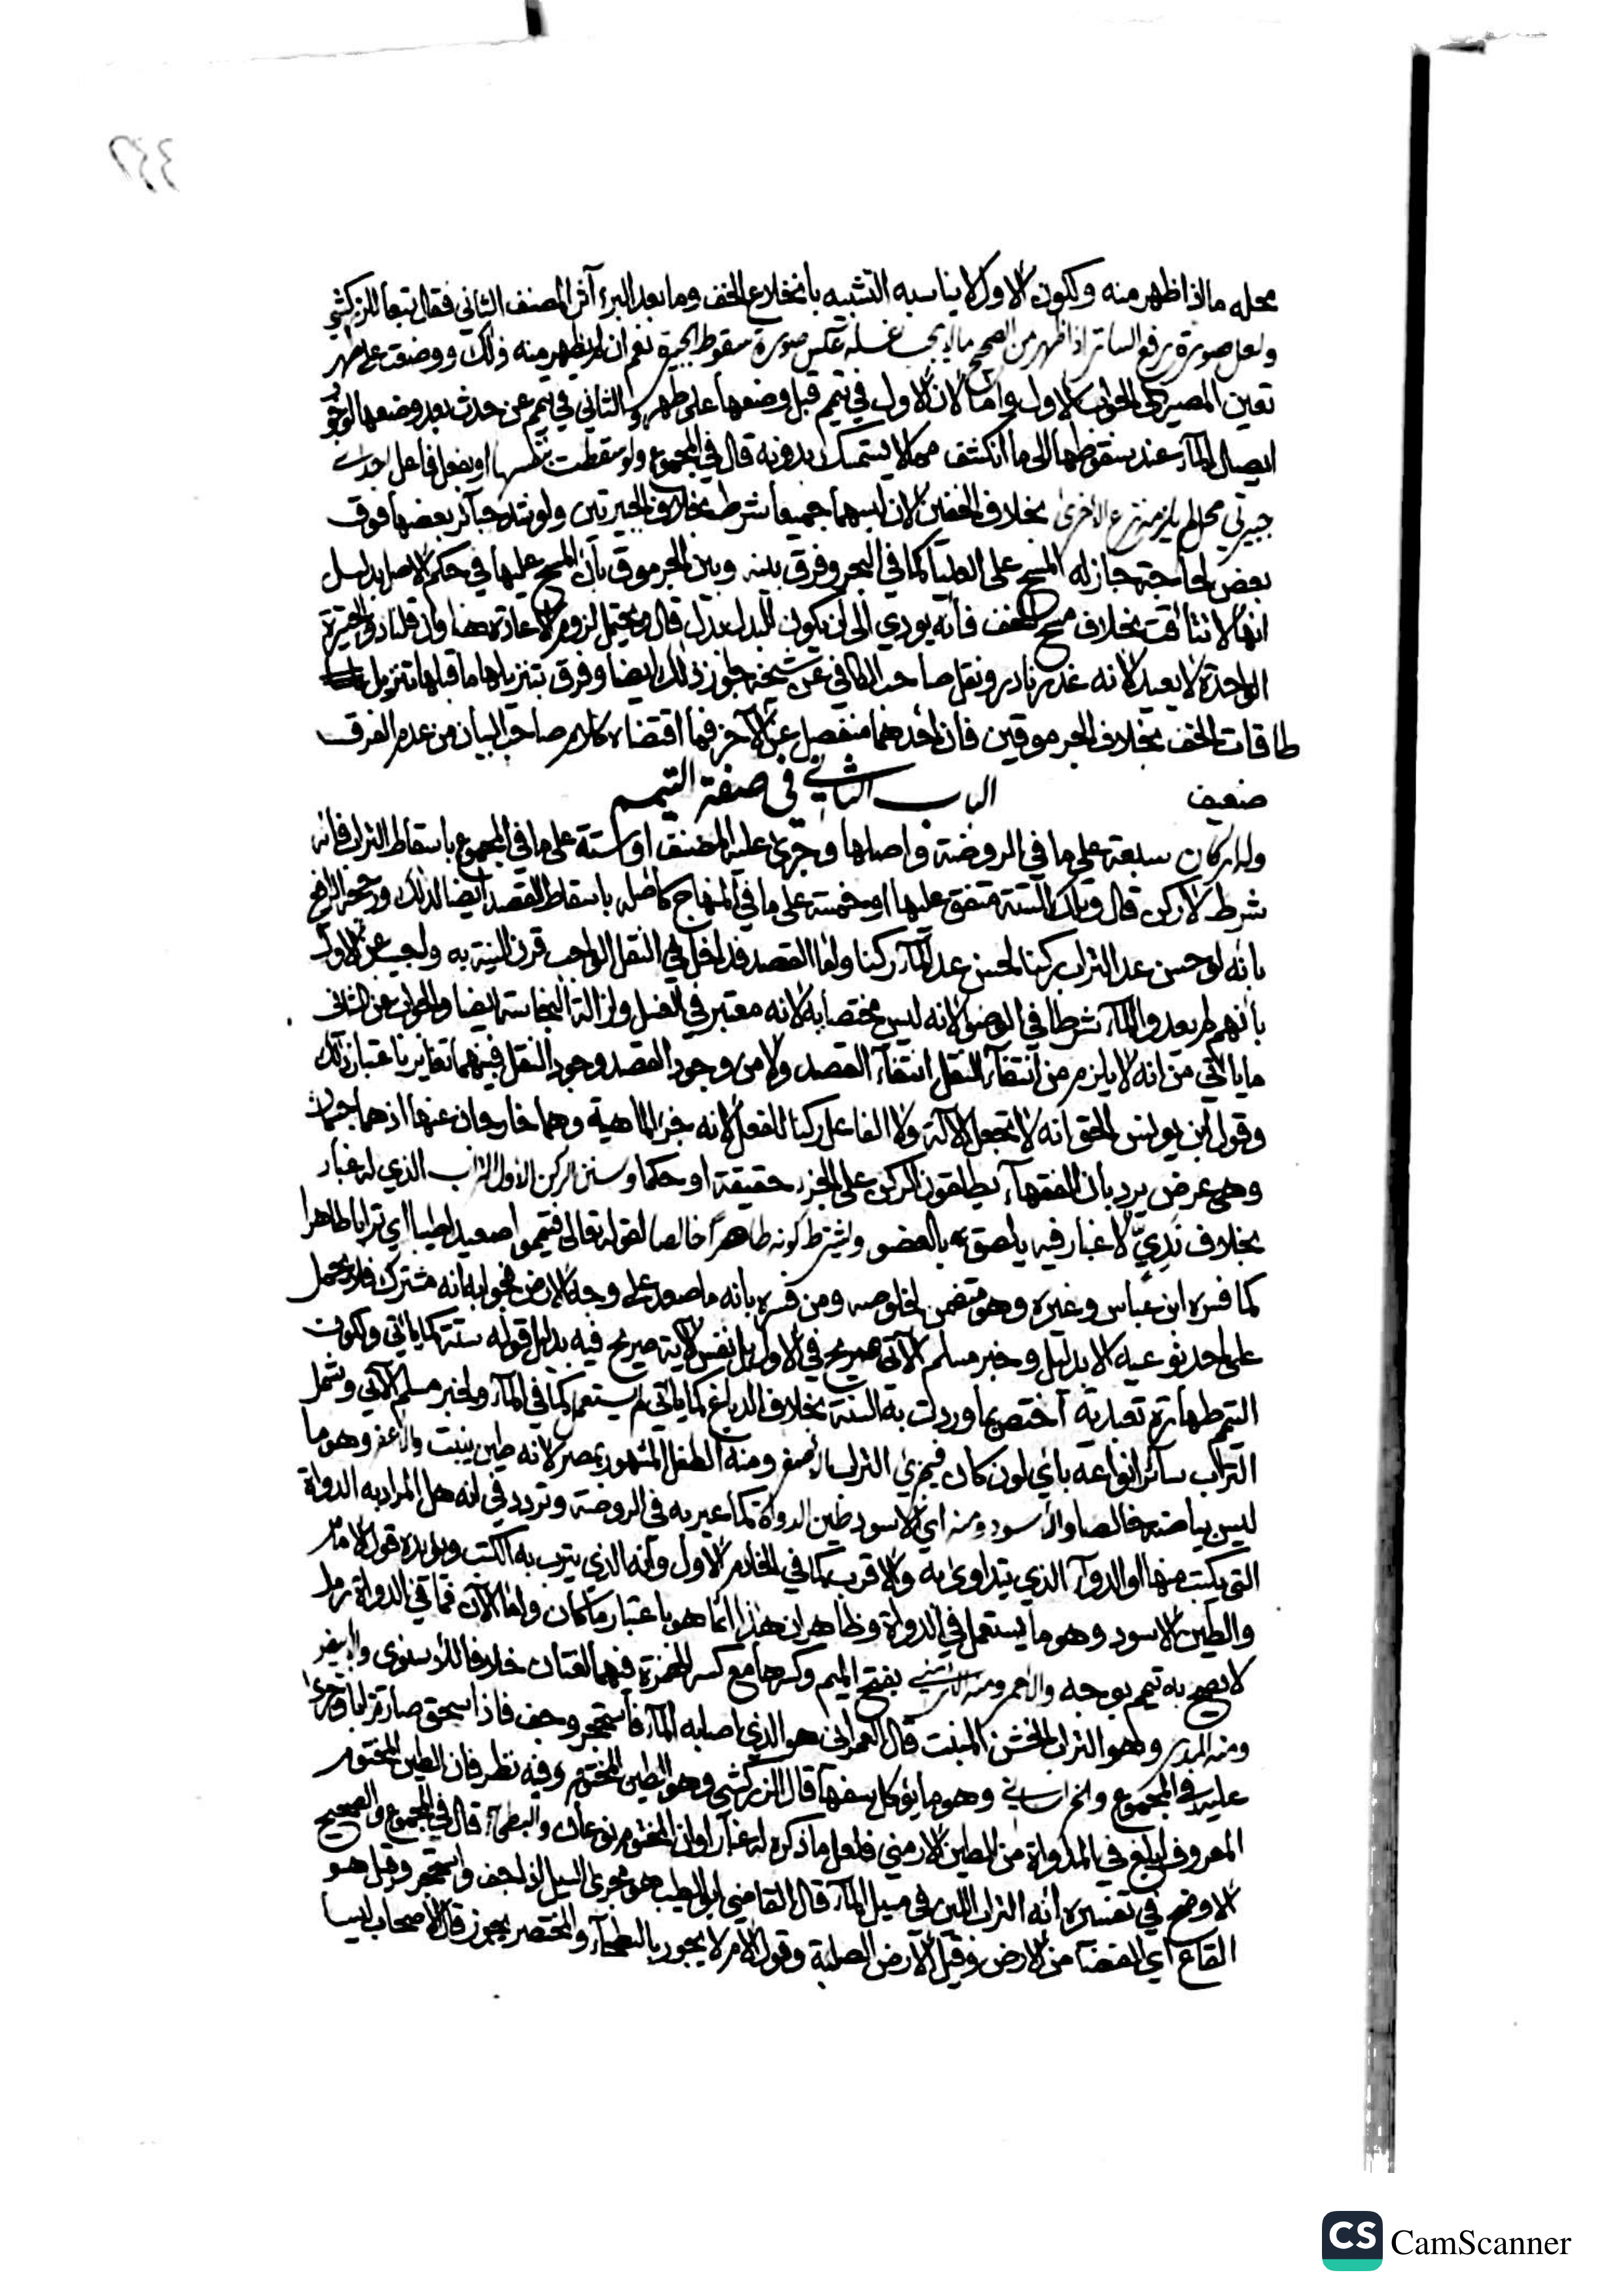 محله ما اذا ظهر منه ولكون الاول لا يناسبه التشبيه بانخلاع الخف وما بعد البرء آثر المصنف الثاني فقال تبعا للزركشي
ولعل صورة رفع الساتر اذا ظهر من الصحيح ما لا يجب غسله عكس صورة سقوط الجبيرة نعم ان لم يظهر منه ذلك ووضعت على طهر
تعين المصير الى الجواب الاول واما لان الاول في تيمم قبل وضعها على طهر والثاني في تيمم عن حدث بعد وضعها لوجوب
ايصال الماء عند سقوطها الى ما انكشف مما لا يستمسك بدونه قال في المجموع ولو سقطت بنفسها او بفعل فاعل احدى
جبيرتي محل لم يلزمه نزع الاخرى بخلاف الخفين لان لبسهما جميعا شرط بخلاف الجبيرتين ولو شد جبائر بعضها فوق
بعض لحاجته جاز له المسح على العليا كما في البحر وفرق بينه وبين الجرموق بان المسح عليها في حكم الاصل بدليل
انها لا تتاقت بخلاف مسح الخف فانه يودي الى ان يكون للبدل بدل قال ويحتمل لزوم الاعادة هنا وان قلنا ذو الجبيرة
الواحدة لا يعيد لانه عذر نادر ونقل صاحب الكافي عن شيخه جواز ذلك ايضا وفرق بتنزيلها ما قبلها تنزيل
طاقات الخف بخلاف الجرموقين فان احدهما منفصل عن الآخر فما اقتضاه كلام صاحب البيان من عدم الفرق
ضعيف الباب الثاني في صفة التيمم
وله اركان سبعة على ما في الروضة واصلها وجرى عليه المصنف او ستة على ما في المجموع باسقاط التراب فانه
شرط لا ركن قال وتلك الستة متفق عليها او خمسة على ما في المنهاج كاصله باسقاط القصد ايضا لذلك ورجحه الرافعي
بانه لو حسن عد التراب ركنا لحسن عد الماء ركنا واما القصد فداخل في النقل الواجب قرن النية به واجيب عن الاول
بانهم لم يعدوا الماء شرطا في الوضوء لانه ليس مختصا به لانه معتبر في الغسل وازالة النجاسة ايضا والجواب عن الثاني
ما ياتي من انه لا يلزم من انتفاء النقل انتفاء القصد ولا من وجود القصد وجود النقل فبينهما تغاير باعتبار ذلك
وقول ابن يونس الحق انه لا تجعل الآلة ولا الفاعل ركنا للفعل لانه جزء الماهية وهما خارجان عنها اذ هما جسمان
وهي عرض يرد بان الفقهاء يطلقون الركن على الجزء حقيقة او حكما وسنن الركن الاول التراب الذي له غبار
بخلاف ندي لا غبار فيه يلصق به بالعضو ويشترط كونه طاهرا خالصا لقوله تعالى فتيمموا صعيدا طيبا اي ترابا طاهرا
كما فسره ابن عباس وغيره وهو متضمن لخلوصه ومن فسره بانه ما صعد على وجه الارض فجوابه انه مشترك فلا يحمل
على احد نوعيه الا بدليل وخبر مسلم الآتي صريح في الاول بل نفس الآية صريح فيه بدليل قوله منه كما ياتي ولكون
التيمم طهارة تعبدية اختص بما وردت به السنة بخلاف الدباغ كما ياتي لم يستعمل كما في الماء ولخبر مسلم الآتي وشمل
التراب سائر انواعه باي لون كان فيجزئ التراب الاصفر ومنه الطفل المشهور بمصر لانه طين ينبت والاعفر وهو ما
ليس بياضه خالصا والاسود ومنه اي الاسود طين الدواة كما عبر به في الروضة وتردد في انه هل المراد به الدواة
التي يكتب منها او الدواء الذي يتداوى به والاقرب كما في الخادم الاول وانه الذي يترب به الكتب ويؤيده قول الامام
والطين الاسود وهو ما يستعمل في الدواة وظاهر ان هذا انما هو باعتبار ما كان واما الآن فما في الدواة رمل
لا يصح به تيمم بوجه والاحمر ومنه الارمني بفتح الميم وكسرها مع كسر الهمزة فيهما لغتان خلافا للاسنوي والابيض
ومنه المدر وهو التراب الخشن المنبت قال العمراني هو الذي اصابه الماء فاستحجر وجف فاذا سحق صار ترابا وجرى
عليه في المجموع والخراساني وهو ما يؤكل سفها قال الزركشي وهو الطين المختوم وفيه نظر فان الطين المختوم
المعروف ابلغ في المداواة من الطين الارمني فلعل ما ذكره له غبار او ان المختوم نوعان والبطحاء قال في المجموع والصحيح
الاوضح في تفسيره انه التراب اللين في مسيل الماء قال القاضي ابو الطيب هو مجرى السيل اذا جف واستحجر وقيل هو
القاع اي الفضاء من الارض وقيل الارض الصلبة وقول الام لا يجوز بالبطحاء والمختصر يجوز قال الاصحاب ليسا
CS CamScanner